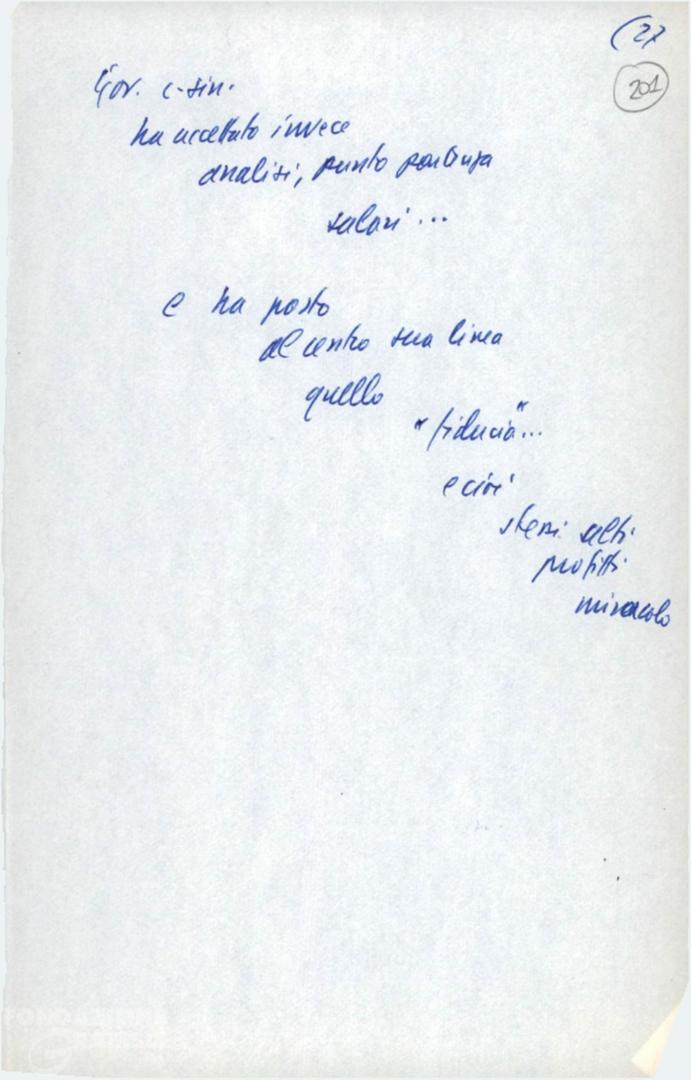 (27
201
Gov. c-sin.
ha accettato invece
analisi, punto partenza
salari...
e ha posto
al centro sua linea
quello
"fiducia"...
e cioè
stessi alti
profitti
miracolo
FONDAZIONE